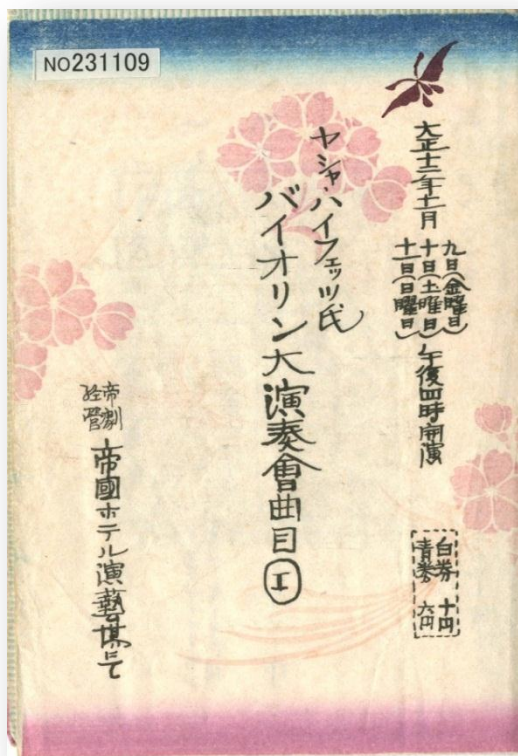 NO231109
大正十二年十一月
九日(金曜日)
十日(土曜日)
十一日(日曜日)
午後四時開演
白券 十円
青券 六円
ヤシャ・ハイフェッツ氏
バイオリン大演奏會曲目 I
帝劇
経営
帝國ホテル演藝場にて